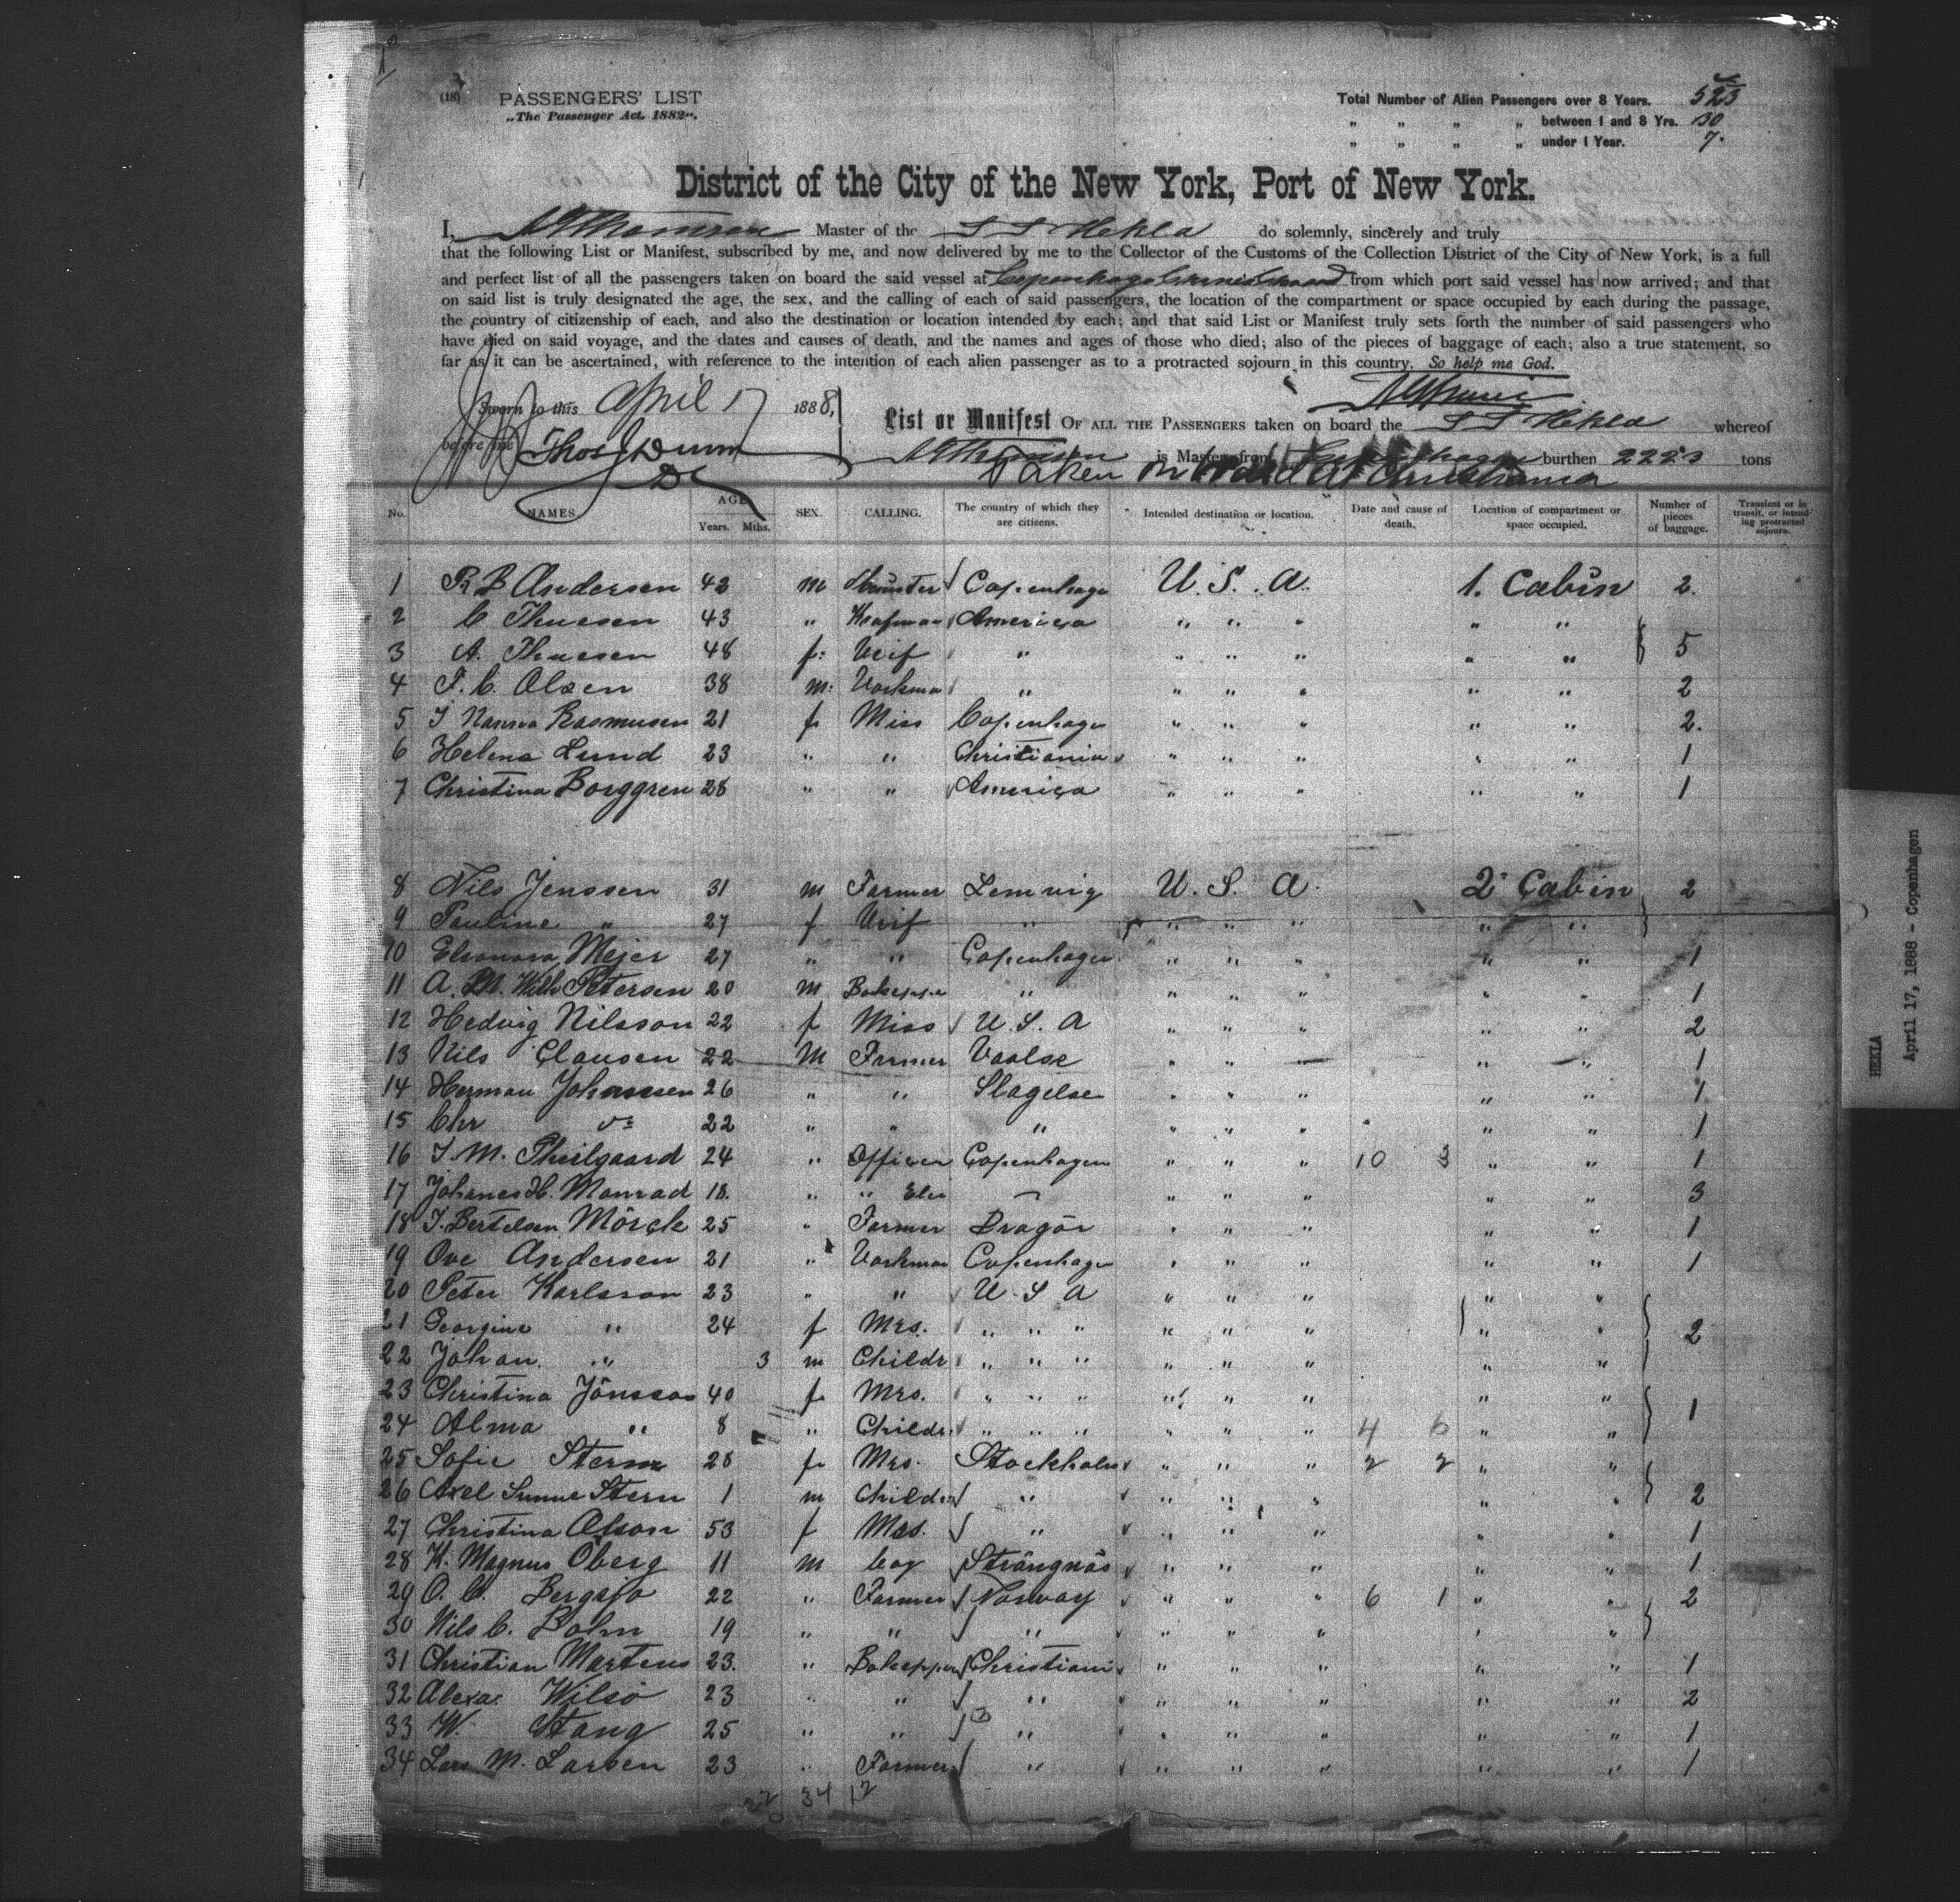 (18)
PASSENGERS' LIST
„The Passenger Act. 1882“.
Total Number of Alien Passengers over 8 Years. 523
„ „ „ „ between 1 and 8 Yrs. 30
„ „ „ „ under 1 Year. 7.
District of the City of the New York, Port of New York.
I, Master of the S S Hekla do solemnly, sincerely and truly
that the following List or Manifest, subscribed by me, and now delivered by me to the Collector of the Customs of the Collection District of the City of New York, is a full
and perfect list of all the passengers taken on board the said vessel at from which port said vessel has now arrived; and that
on said list is truly designated the age, the sex, and the calling of each of said passengers, the location of the compartment or space occupied by each during the passage,
the country of citizenship of each, and also the destination or location intended by each; and that said List or Manifest truly sets forth the number of said passengers who
have died on said voyage, and the dates and causes of death, and the names and ages of those who died; also of the pieces of baggage of each; also a true statement, so
far as it can be ascertained, with reference to the intention of each alien passenger as to a protracted sojourn in this country. So help me God.
Sworn to this April 17 1888,
before me Thos J Dunn
DC
List or Manifest OF ALL THE PASSENGERS taken on board the S S Hekla whereof
is Master, from Copenhagen burthen 2223 tons
Taken on board at Christiania
No. NAMES. AGE Years. Mths. SEX. CALLING. The country of which they are citizens. Intended destination or location. Date and cause of death. Location of compartment or space occupied. Number of pieces of baggage. Transient or in transit, or intending protracted sojourn.
1 R B Andersen 42 m Copenhage U. S. A. 1. Cabin 2.
2 C Thuesen 43 „ America „ „ „ „ „
3 A. Thuesen 48 f: Weif „ „ „ „ „ „ 5
4 F. C. Olsen 38 m: Workma „ „ „ „ „ „ 2
5 J Nanna Rasmusen 21 f Miss Copenhage „ „ „ „ „ 2.
6 Helena Lund 23 „ „ Christiania „ „ „ „ „ 1
7 Christina Borggren 28 „ „ America „ „ „ „ „ 1
8 Nils Jenssen 31 m Farmer Lemvig U. S. A. 2 Cabin 2
9 Pauline „ 27 f Weif „ „ „ „ „ „
10 Eleonora Mejer 27 „ „ Copenhagen „ „ „ „ „ 1
11 A. M. Wilh Petersen 20 m „ „ „ „ „ „ 1
12 Hedvig Nilsson 22 f Miss U. S. A „ „ „ „ „ 2
13 Nils Clausen 22 m Farmer Vaalse „ „ „ „ 1
14 Herman Johanssen 26 „ „ Slagelse „ „ „ „ „ 1
15 Chr do 22 „ „ „ „ „ „ „ „ 1
16 J. M. Theilgaard 24 „ Officer Copenhagen „ „ „ 10 3 „ „ 1
17 Johanes H. Monrad 18. „ „ Elev „ „ „ „ „ 3
18 J. Bertelsen Mörck 25 „ Farmer Dragör „ „ „ „ „ 1
19 Ove Andersen 21 „ Workman Copenhage „ „ „ „ „ 1
20 Peter Karlsson 23 „ „ U S A „ „ „ „ „
21 Georgine „ 24 f Mrs. „ „ „ „ „ „ „ „ 2
22 Johan. „ 3 m Childr „ „ „ „ „ „ „ „
23 Christina Jönsson 40 f Mrs. „ „ „ „ „ „ „ „ 1
24 Alma „ 8 „ Childr. „ „ „ „ „ „ 4 6 „ „
25 Sofie Stern 28 f Mrs. Stockholm „ „ „ 2 2 „ „
26 Axel Sunne Stern 1 m Childr „ „ „ „ „ „ 2
27 Christina Olson 53 f Mrs. „ „ „ „ „ „ 1
28 K. Magnus Öberg 11 m boy Strängnäs „ „ „ „ „ 1
29 O. O. Bergsjo 22 „ Farmer Norway „ „ „ 6 1 „ „ 2
30 Nils C. Bohn 19 „ „ „ „ „ „ „ „
31 Christian Martens 23. „ Bokepper Christiani „ „ „ „ „ 1
32 Alexa. Wilsö 23 „ „ „ „ „ „ „ „ 2
33 W. Stang 25 „ „ „ „ „ „ „ „ 1
34 Lars M. Larsen 23 „ Farmer „ „ „ „ „ „ 1
34 12
HEKLA
April 17, 1888 - Copenhagen